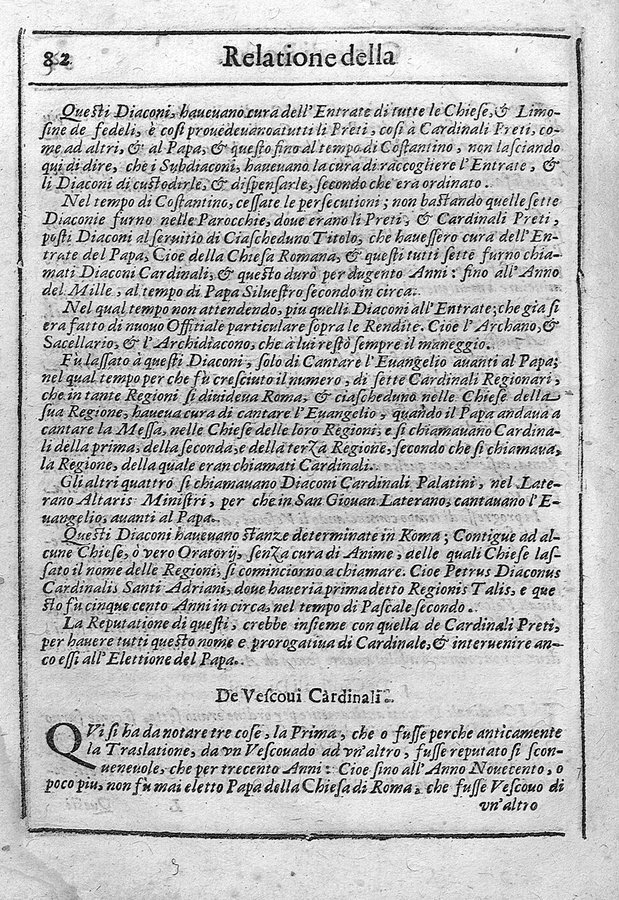 82 Relatione della
Questi Diaconi, haveuano cura dell'Entrate di tutte le Chiese, & Limo-
sine de fedeli, è così prouedeuano a tutti li Preti, così à Cardinali Preti, co-
me ad altri, & al Papa, & questo fino al tempo di Costantino, non lasciando
qui di dire, che i Subdiaconi, haueuano la cura di raccogliere l'Entrate, &
li Diaconi di custodirle, & dispensarle, secondo che era ordinato.
Nel tempo di Costantino, cessate le persecutioni; non bastando quelle sette
Diaconie furno nelle Parocchie, doue erano li Preti, & Cardinali Preti,
posti Diaconi al seruitio di Ciascheduno Titolo, che hauessero cura dell'En-
trate del Papa, Cioe della Chiesa Romana, & questi tutti sette furno chia-
mati Diaconi Cardinali, & questo durò per dugento Anni: fino all'Anno
del Mille, al tempo di Papa Siluestro secondo in circa.
Nel qual tempo non attendendo, piu quelli Diaconi all'Entrate; che già si
era fatto di nuouo Offitiale particulare sopra le Rendite. Cioe l'Archano, &
Sacellario, & l'Archidiacono, che à lui restò sempre il maneggio.
Fù lassato à questi Diaconi, solo di Cantare l'Euangelio auanti al Papa;
nel qual tempo per che fù cresciuto il numero, di sette Cardinali Regionari,
che in tante Regioni si diuideua Roma, & ciascheduno nelle Chiese della
sua Regione, haueua cura di cantare l'Euangelio, quando il Papa andaua à
cantare la Messa, nelle Chiese delle loro Regioni, e si chiamauano Cardina-
li della prima, della seconda, e della terza Regione, secondo che si chiamaua,
la Regione, della quale eran chiamati Cardinali.
Gli altri quattro si chiamauano Diaconi Cardinali Palatini, nel Late-
rano Altaris Ministri, per che in San Giouan Laterano, cantauano l'E-
uangelio, auanti al Papa.
Questi Diaconi haueuano stanze determinate in Roma; Contigue ad al-
cune Chiese, ò vero Oratorij, senza cura di Anime, delle quali Chiese las-
sato il nome delle Regioni, si cominciorno a chiamare. Cioe Petrus Diaconus
Cardinalis Santi Adriani, doue haueria prima detto Regionis Talis, e que
sto fù cinque cento Anni in circa, nel tempo di Pascale secondo.
La Reputatione di questi, crebbe insieme con quella de Cardinali Preti,
per hauere tutti questo nome e prorogatiua di Cardinale, & interuenire an-
co essi all'Elettione del Papa.
De Vescoui Càrdinali.
QVi si ha da notare tre cose, la Prima, che o fusse perche anticamente
la Traslatione, da vn Vescouado ad vn'altro, fusse reputato si scon-
ueneuole, che per trecento Anni: Cioe sino all'Anno Nouecento, o
poco piu, non fu mai eletto Papa della Chiesa di Roma, che fusse Vescouo di
vn'altro